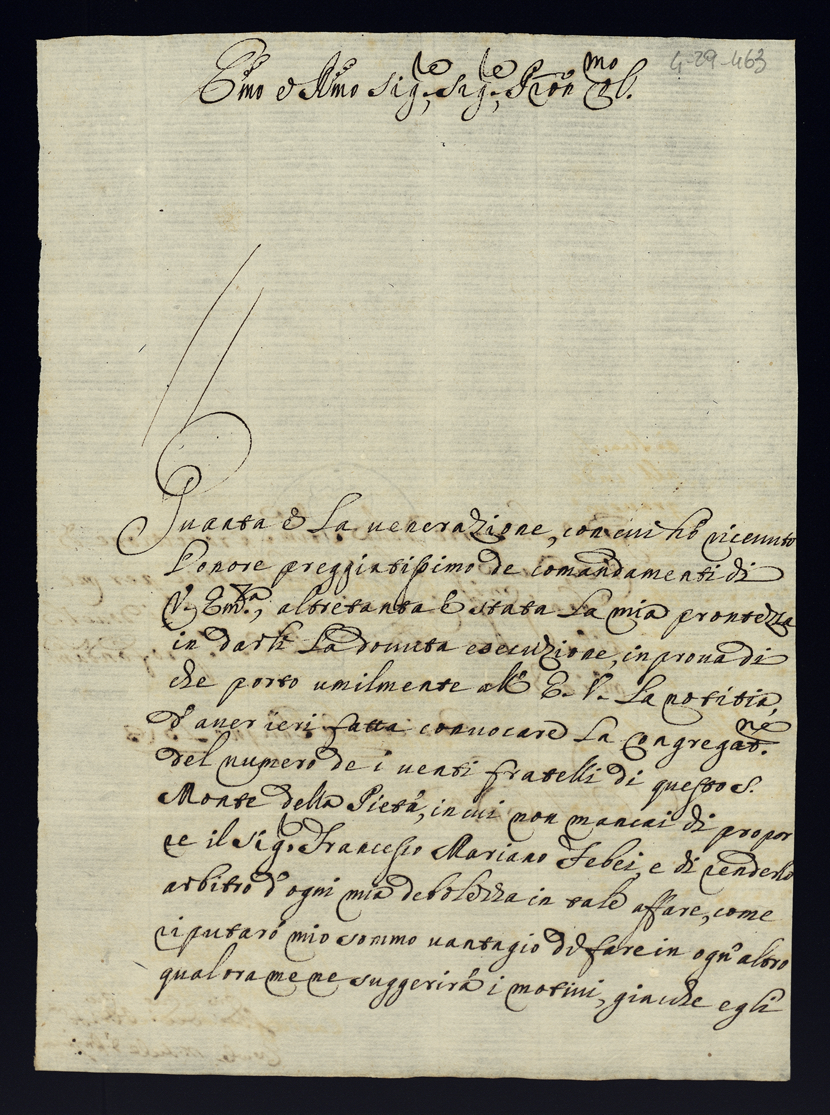 4-29-463
Emo e Rmo Sig.re Sig.re Pron mo Col.
Quanta è La uenerazione, con cui hò riceuuto
L'onore preggiatissimo de comandamenti di
V. Em.za, altretanta è stata La mia prontezza
in darli La douuta esecuzione, in proua di
che porto umilmente all' E. V. La notitia,
d'auer ieri fatta conuocare La Congregat.ne
del numero de i uenti fratelli di questo S.
Monte della Pietà, in cui non mancai di propor
re il Sig.r Francesco Mariano Febei, e di renderlo
arbitro d'ogni mia debolezza in tale affare, come
riputarò mio sommo uantagio di fare in ogn'altro
qual ora me ne suggerirà i motiui, giache egli